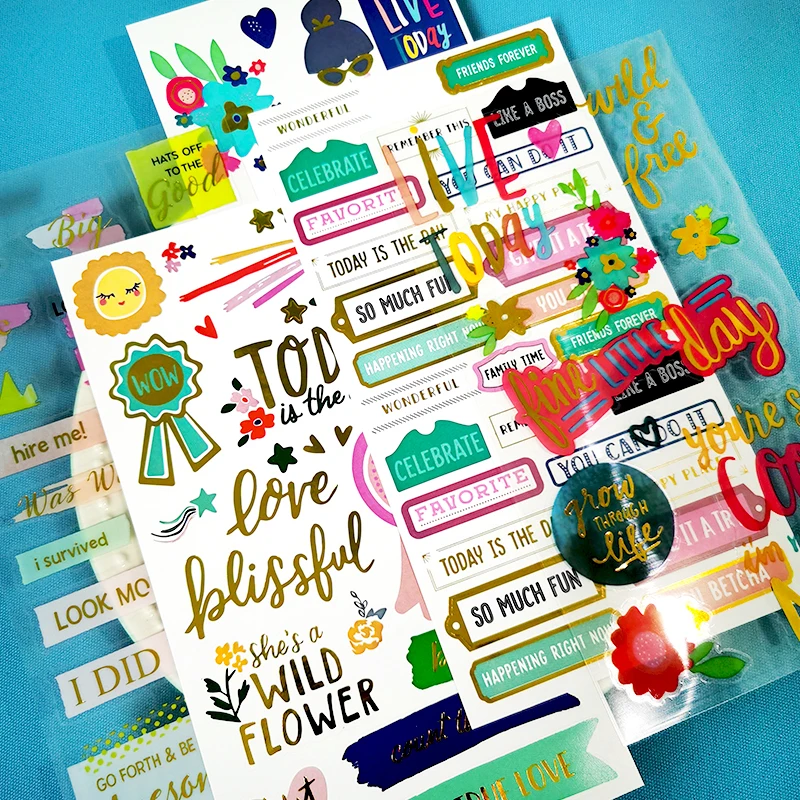 LIVE
TODAY
FRIENDS FOREVER
WONDERFUL
REMEMBER THIS
LIKE A BOSS
wild
&
free
HATS OFF
TO THE
Good
CELEBRATE
LIVE
TODAY
YOU CAN DO IT
FAVORITE
MY HAPPY
Big
TODAY IS THE DAY
SO MUCH FUN
YOU
HAPPENING RIGHT NOW
FAMILY TIME
FRIENDS FOREVER
WOW
TOD
is the
WONDERFUL
LIKE A BOSS
fine
LITTLE
day
hire me!
CELEBRATE
YOU CAN DO IT
you're
Was
love
FAVORITE
PY PL
grow
THROUGH
life
i survived
blissful
TODAY IS THE D
IT A TR
LOOK MO
SO MUCH FUN
U BETCHA
im
I DID
she's a
WILD
FLOWER
HAPPENING RIGHT NOW
GO FORTH & BE
TRUE LOVE